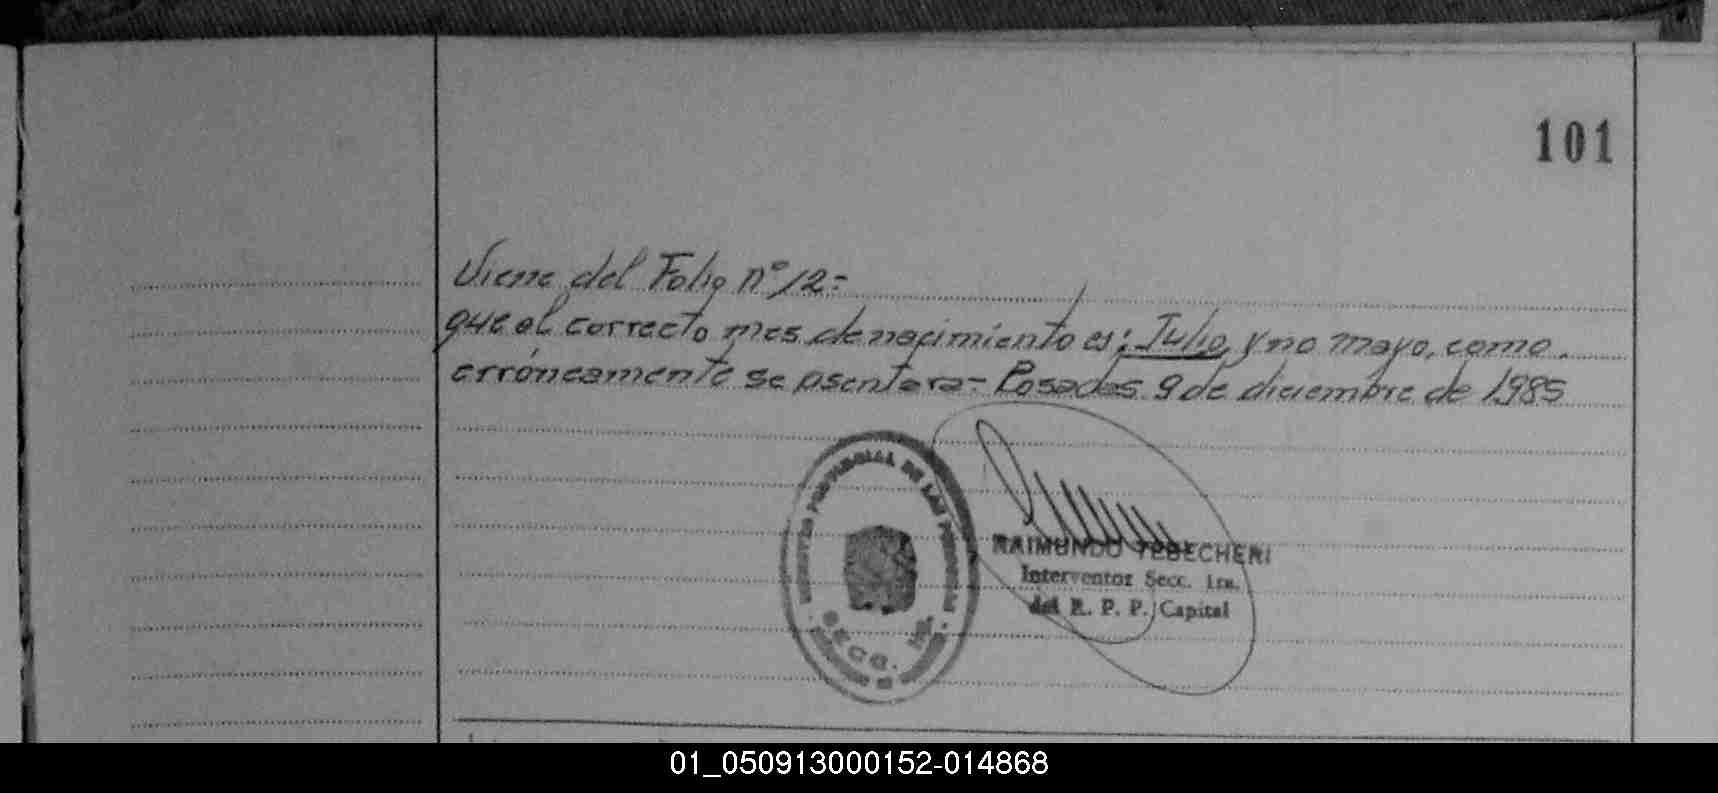 101
Viene del Folio nº 12=
que el correcto mes de nacimiento es: Julio y no mayo, como
erróneamente se asentara= Posadas 9 de diciembre de 1985
PROVINCIAL DE LAS
SECC. 1ra.
RAIMUNDO TEBECHERI
Interventor Secc. 1ra.
del R. P. P. Capital
01_050913000152-014868